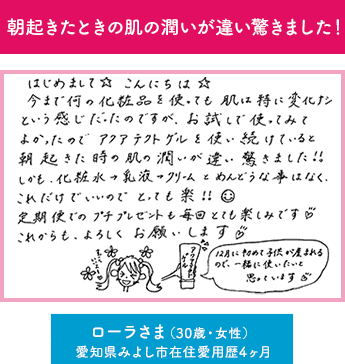 朝起きたときの肌の潤いが違い驚きました！
はじめまして☆ こんにちは☆
今まで何の化粧品を使っても 肌は特に変化ナシ
という感じだったのですが、お試しで使ってみて
よかったので アクアテクトゲルを使い続けていると
朝起きた時の肌の潤いが違い驚きました!!
しかも、化粧水→乳液→クリームとめんどうな事はなく、
これだけでいいので とっても楽!!
定期便での プチプレゼントも毎回とても楽しみです
これからも、よろしくお願いします
アクアテクトゲル
12月に初めて子供が産まれる
ので、一緒に使いたいと
思っています
ローラさま（30歳・女性）
愛知県みよし市在住愛用歴4ヶ月